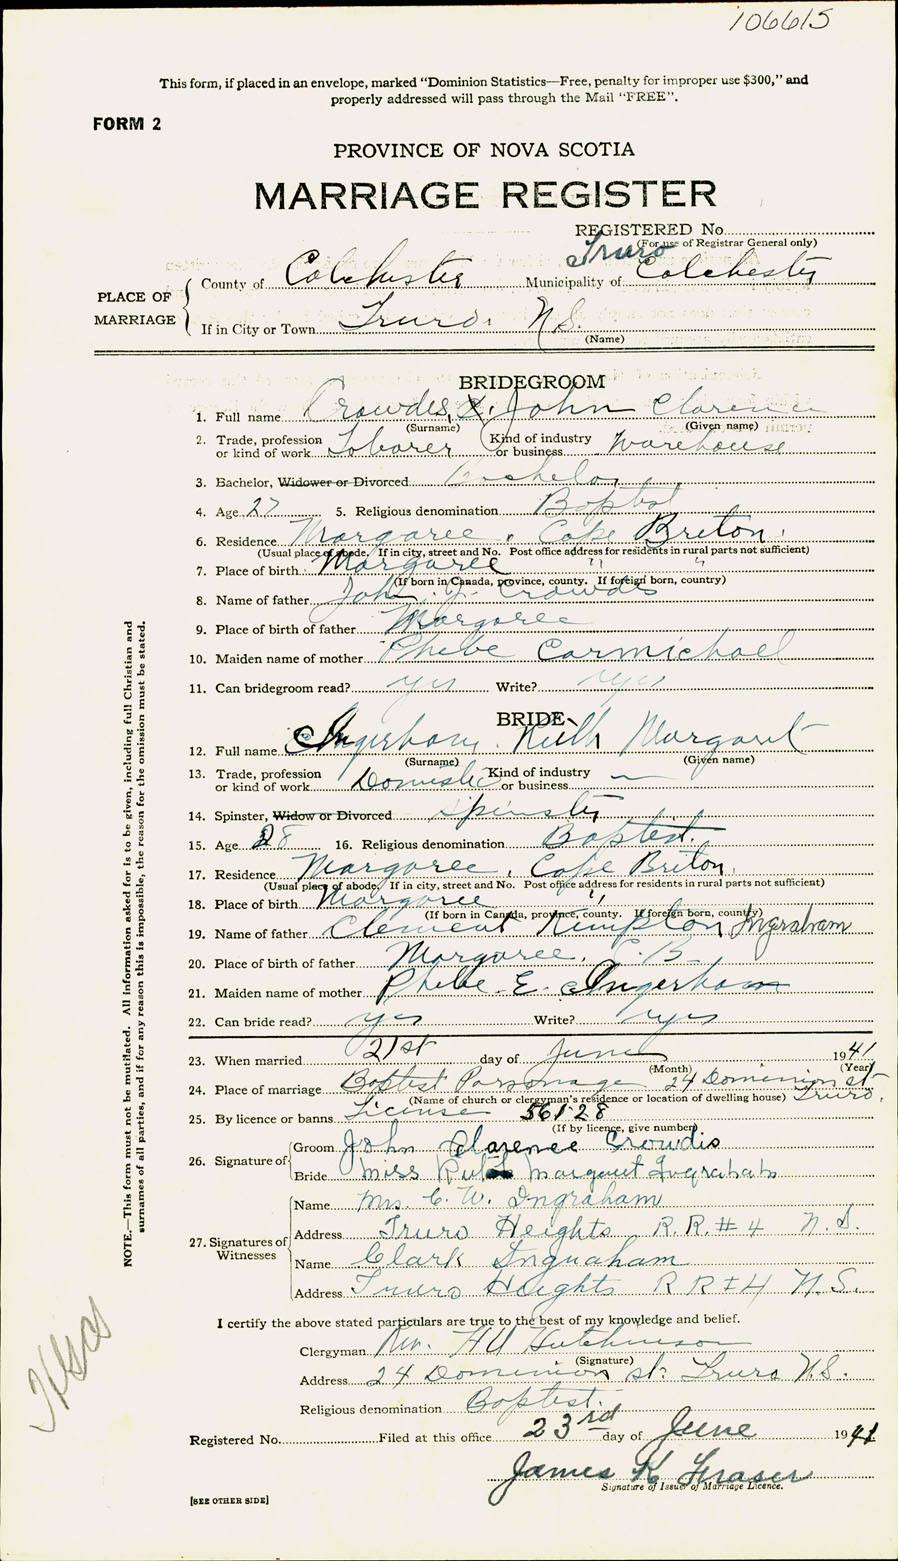 106615
This form, if placed in an envelope, marked "Dominion Statistics—Free, penalty for improper use $300," and
properly addressed will pass through the Mail "FREE".
FORM 2
PROVINCE OF NOVA SCOTIA
MARRIAGE REGISTER
REGISTERED No.
(For use of Registrar General only)
Truro
PLACE OF MARRIAGE
County of Colchester Municipality of Colchester
If in City or Town Truro N.S.
(Name)
BRIDEGROOM
1. Full name Crowdis, John Clarence
(Surname) (Given name)
2. Trade, profession or kind of work Laborer Kind of industry or business Warehouse
3. Bachelor, Widower or Divorced Bachelor
4. Age 27 5. Religious denomination Baptist
6. Residence Margaree, Cape Breton.
(Usual place of abode. If in city, street and No. Post office address for residents in rural parts not sufficient)
7. Place of birth Margaree " "
(If born in Canada, province, county. If foreign born, country)
8. Name of father John J. Crowdis
9. Place of birth of father Margaree
10. Maiden name of mother Phebe Carmichael
11. Can bridegroom read? yes Write? yes
BRIDE
12. Full name Ingerham, Ruth Margaret
(Surname) (Given name)
13. Trade, profession or kind of work Domestic Kind of industry or business —
14. Spinster, Widow or Divorced Spinster
15. Age 28 16. Religious denomination Baptist.
17. Residence Margaree, Cape Breton.
(Usual place of abode. If in city, street and No. Post office address for residents in rural parts not sufficient)
18. Place of birth Margaree "
(If born in Canada, province, county. If foreign born, country)
19. Name of father Clement Kempton Ingraham
20. Place of birth of father Margaree, C.B.
21. Maiden name of mother Phebe E. Ingerham
22. Can bride read? yes Write? yes
23. When married 21st day of June 1941
(Month) (Year)
24. Place of marriage Baptist Parsonage 24 Dominion st Truro.
(Name of church or clergyman's residence or location of dwelling house)
25. By licence or banns License 56128
(If by licence, give number)
26. Signature of
Groom John Clarence Crowdis
Bride Miss Ruth Margaret Ingraham
27. Signatures of Witnesses
Name Mrs. C. W. Ingraham
Address Truro Heights R.R. #4 N.S.
Name Clark Ingraham
Address Truro Heights R R #4 N.S.
I certify the above stated particulars are true to the best of my knowledge and belief.
Clergyman Rev. H U Hutchinson
(Signature)
Address 24 Dominion st. Truro N.S.
Religious denomination Baptist.
Registered No. Filed at this office 23rd day of June 1941
James K Fraser
Signature of Issuer of Marriage Licence.
[SEE OTHER SIDE]
NOTE.—This form must not be mutilated. All information asked for is to be given, including full Christian and
surnames of all parties, and if for any reason this is impossible, the reason for the omission must be stated.